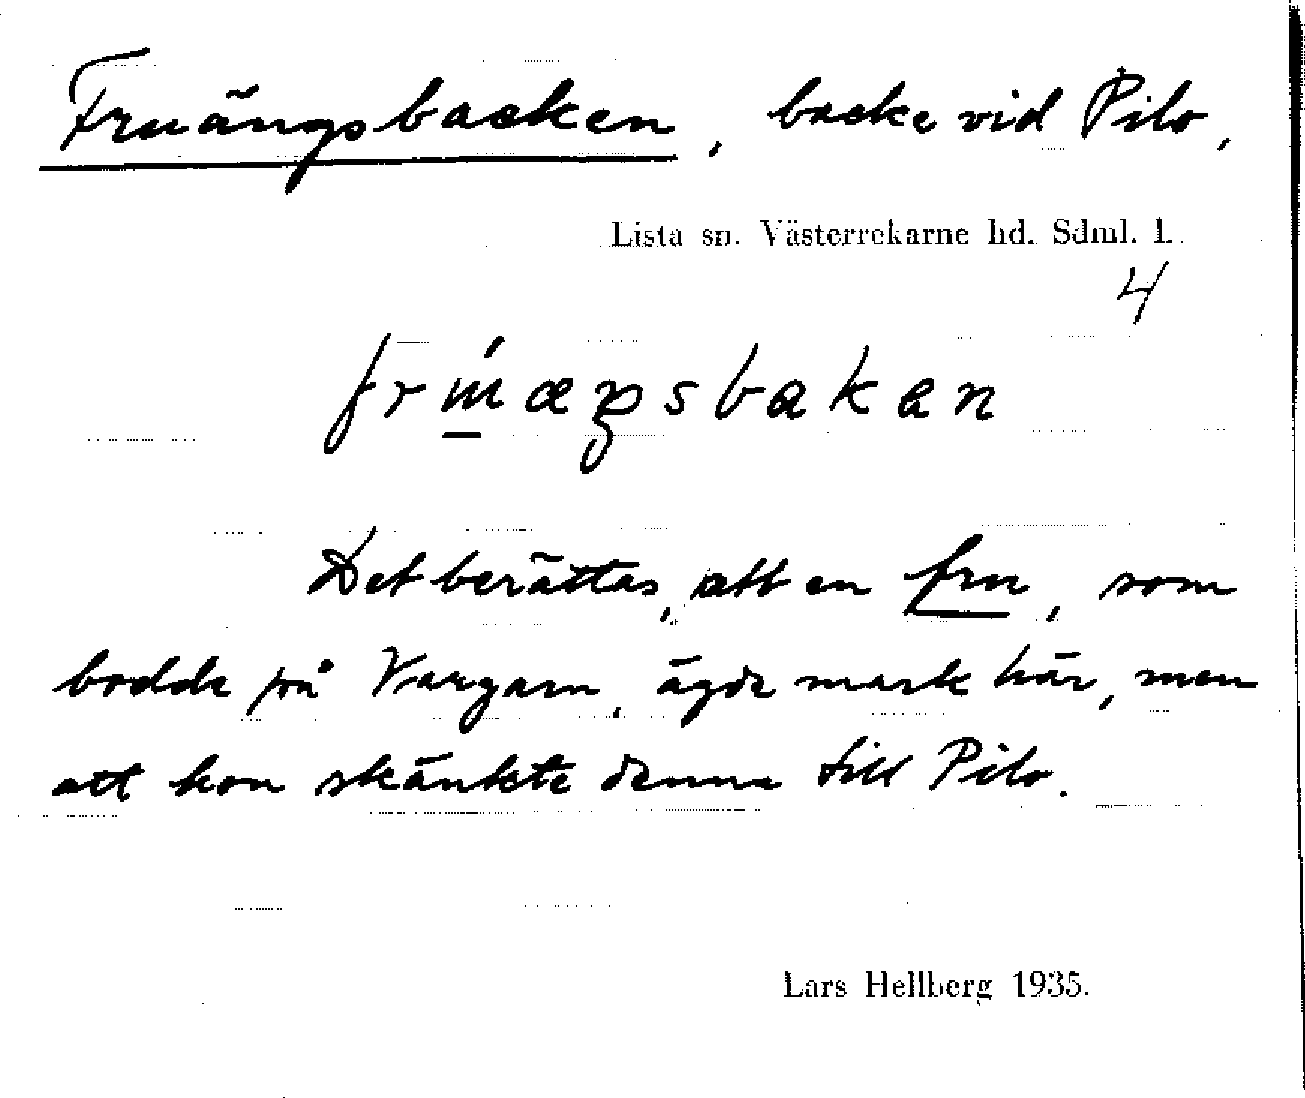 Fruängsbacken, backe vid Pilo,
Lista sn. Västerrekarne hd. Sdml. l.
4
Det berättas, att en fru, som
bodde på Vargarn, ägde mark här, men
att hon skänkte denna till Pilo.
Lars Hellberg 1935.